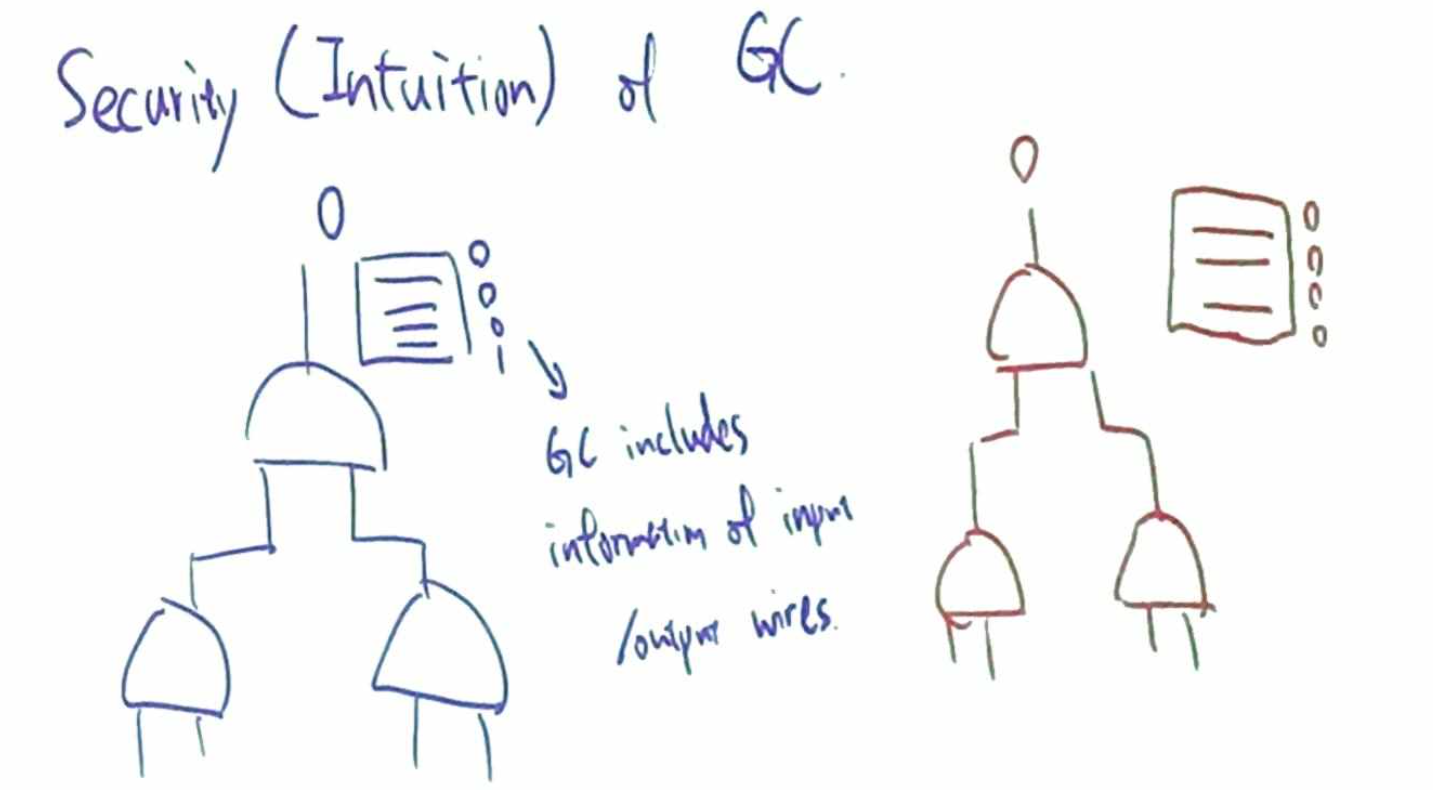 Security (Intuition) of GC.
0
0
0
0
1
GC includes
information of input
/output wires.
0
0
0
0
0